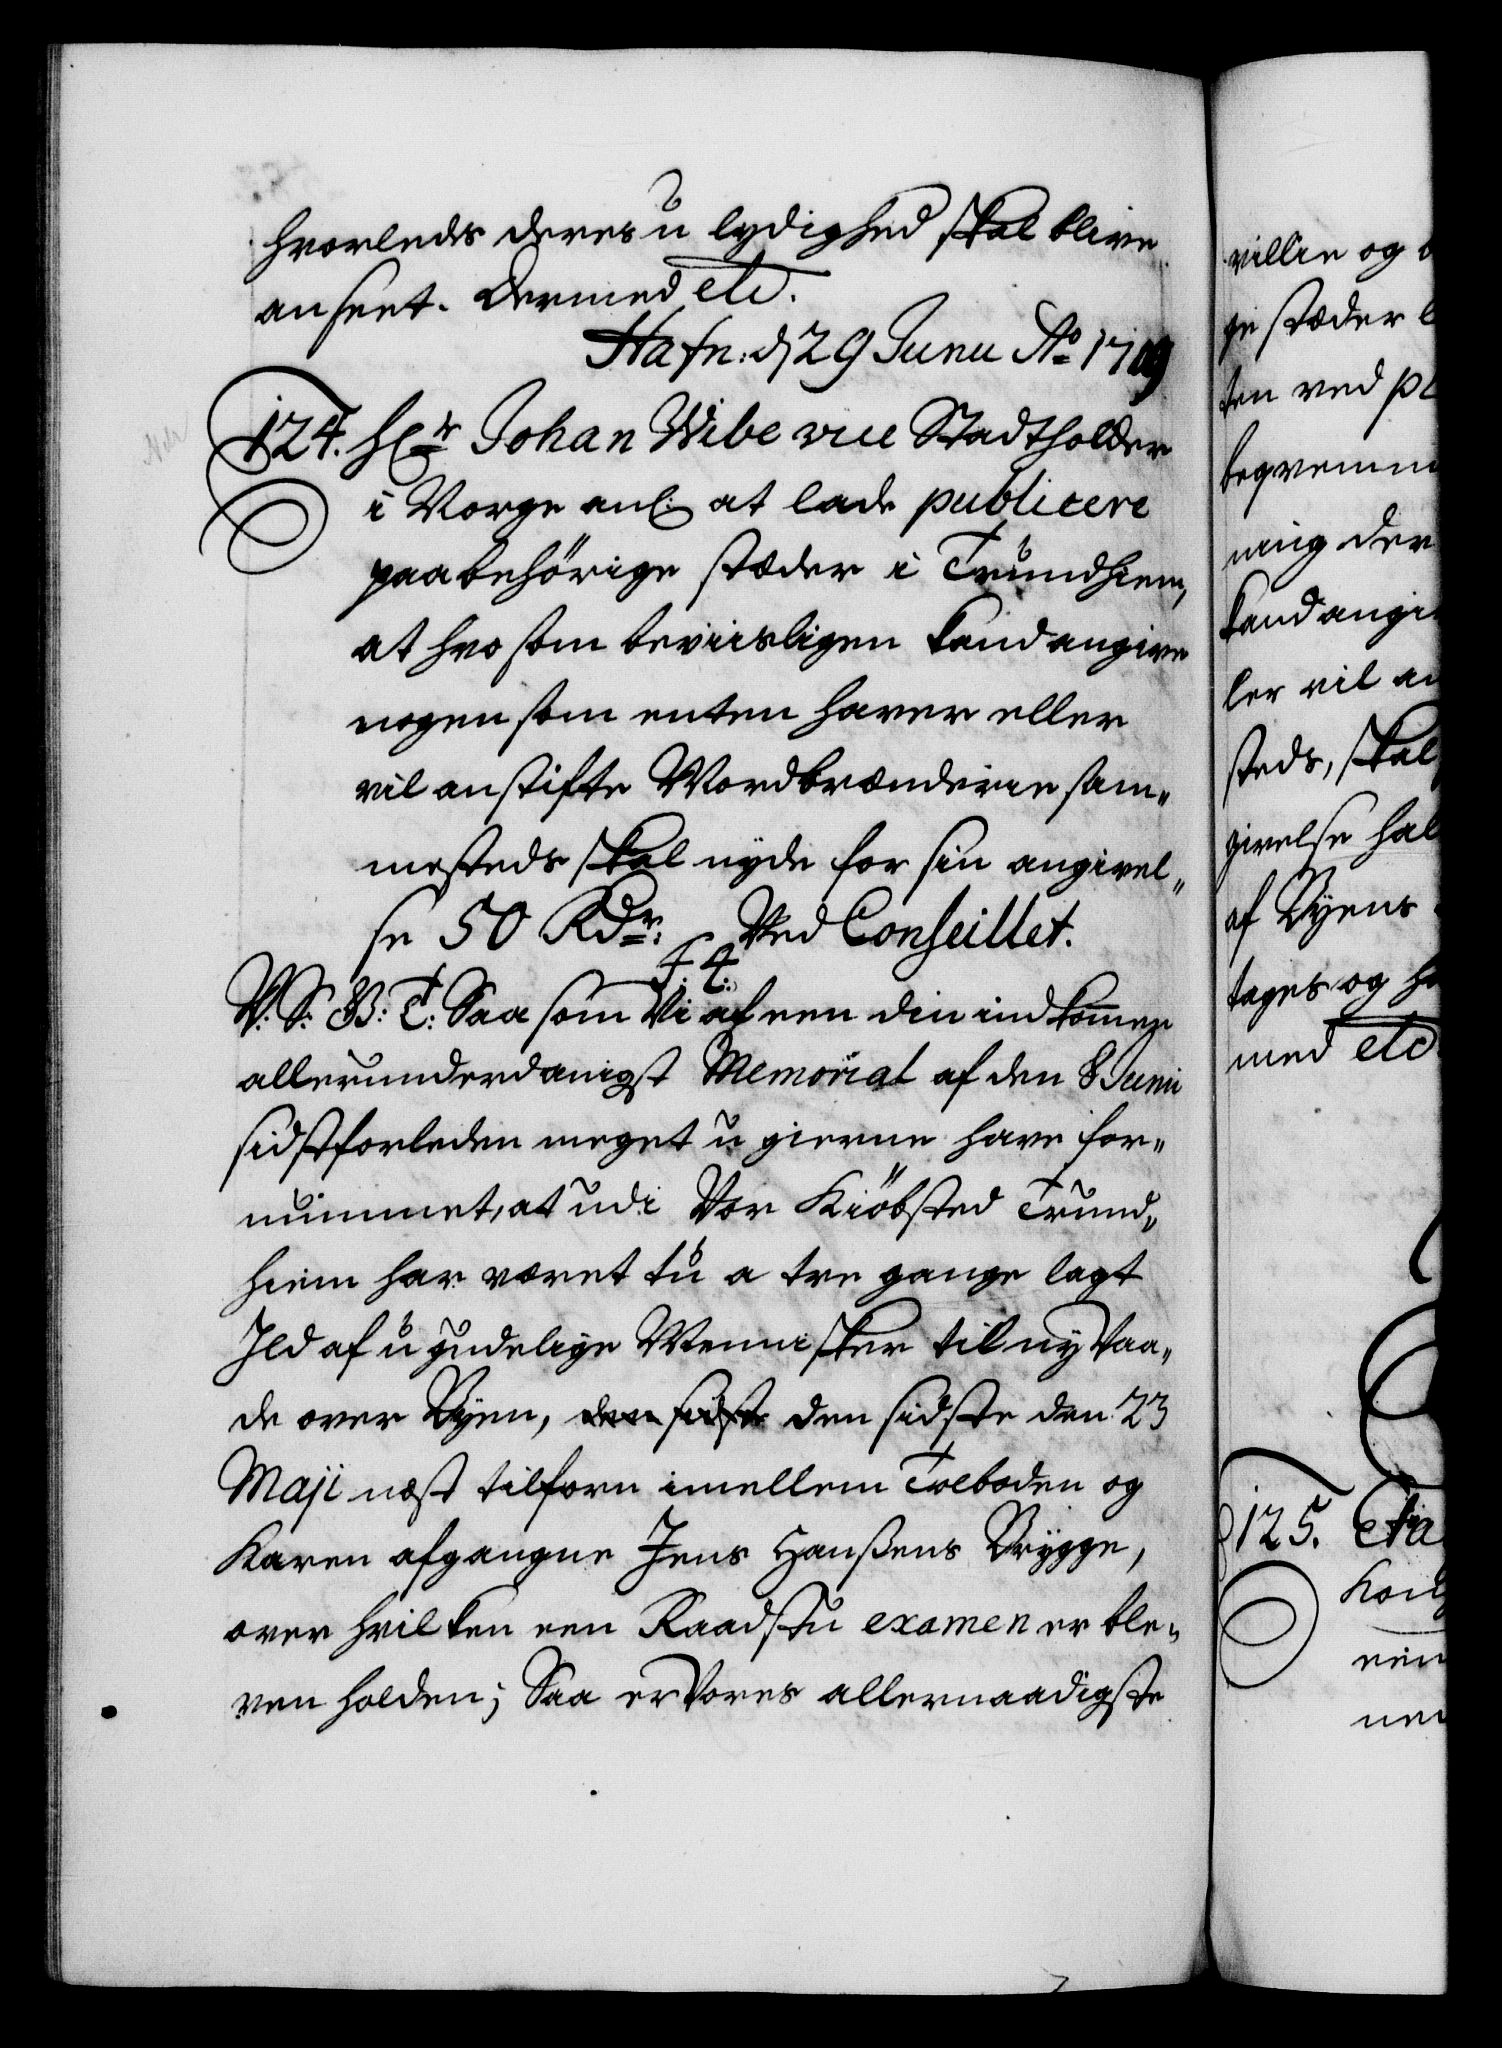 hvorledes deres u lydighed skal blive
anseet. Dermed etc.
Hafn: d 29 Junii Ao 1709
124. Hr Johan Wibe vice Stadtholder
i Norge anl: at lade publicere
paa behörige stæder i Trundhiem,
at hvo som beviisligen kand angive
nogen som enten haver eller
vil anstifte Mordbrænderie sam„
mesteds skal nyde for sin angivel„
se 50 Rdr: Ved Conseillet.
F: 4.
V: S: G: T: Saa som Vi af een din indkommen
allerunderdanigst Memorial af den 8 Junii
sidstforleden meget u gierne have for„
nummet, at udi Vor Kiöbsted Trund„
hiem har været tu a tre gange lagt
Ild af u gudelige Mennisker til ny Vaa„
de over Byen, den sidst den sidste den 23
Maji næst tilforn imellem Tolboden og
Karen afgangne Jens Hanßens Brygge,
over hvilken een Raadstu examen er ble„
ven holden; Saa er Vores allernaadigste
villie og
ge stæder
ten ved
beqvemm
ning der
kand angi
ler vil an
steds, skal
givelse hal
af Byens
tages og
med etc
125. Eta